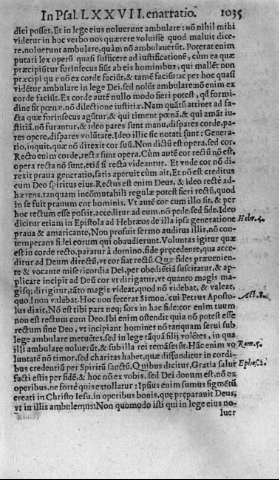 In Psal. LXXVII. enarratio. 1035
dici posset. Et in lege eius noluerunt ambulare: nō nihil mihi
videtur in hoc verbo nos quærere voluisse quod maluit dice-
re, noluerunt ambulare, quàm nō ambulauerūt. Poterat enim
putari lex operū quasi sufficere ad iustificationē, cùm ea quæ
præcipiūtur forinsecus fiūt ab eis hominibus, qui mallēt non
præcipi quæ nō ex corde faciūt, & tamē faciūt: ac per hoc quasi
vidētur ambulare in lege Dei, sed nolūt ambulare: nō enim ex
corde faciūt. Ex corde autē nullo modo fieri potest, qd formi-
dine fit pœnæ, nō dilectione iustitiæ. Nam quātū attinet ad fa-
cta quæ forinsecus agūtur, & qui timent pœnā, & qui amāt iu-
stitiā nō furantur, & ideo pares sunt manu, dispares corde: pa-
res opere, dispares voluntate. Ideo illic sic notati sunt: Genera-
tio, inquit, quæ nō direxit cor suū. Non dictū est opera, sed cor.
Recto enim corde, recta sunt opera. Cùm autē cor rectū nō est,
opera recta nō sunt, etiā si recta videātur. Et vnde cor nō di-
rexit praua generatio, satis aperuit cùm ait, Et nō est creditus
cum Deo spiritus eius. Rectus est enim Deus, & ideo rectè ad-
hærens, tanquam incōmutabili regulæ potest fieri rectū, quod
in se fuit prauum cor hominis. Vt autē cor cum illo sit, & per
hoc rectum esse possit, acceditur ad eum, nō pede, sed fide. Ideo
dicitur etiam in Epistola ad Hebræos de illa ipsa generatione Heb.4.
praua & amaricante, Non profuit sermo auditus illis, nō con-
temperans fidei eorum qui obaudierunt. Voluntas igitur quæ
est in corde recto, paratur à domino, fide præcedente, qua acce-
ditur ad Deum directū, vt cor fiat rectū. Quæ fides præuenien-
te & vocante misericordia Dei, per obedientiā suscitatur, & ap-
plicare incipit ad Deū cor vt dirigatur, vt quanto magis ma-
gisq; dirigitur, tāto magis videat, quod nō videbat, & valeat,
quod non valebat. Hoc non fecerat Simon, cui Petrus Aposto- Act.8.
lus dixit, Nō est tibi pars neq; sors in hac fide: cor enim tuum
non est rectum cum Deo. Ibi enim ostendit quia nō potest esse
rectum sine Deo, vt incipiant homines nō tanquam serui sub
lege ambulare metuētes, sed in lege tāquā filij volētes, in qua
illi ambulare noluerūt, & subilla rei remāserūt. Hāc enim vo- Rom.5.
luntatē nō timor, sed charitas habet, quæ diffunditur in cordi-
bus credentiū per Spiritū sanctū. Quibus dicitur, Gratia salui Ephes.2.
facti estis per fidē, & hoc nō ex vobis, sed Dei donum est, nō ex
operibus, ne fortè quis extollatur: Ipsius enim sumus figmentū
creati in Christo Iesu, in operibus bonis, quæ præparauit Deus,
vt in illis ambulemus: Non quomodo isti qui in lege eius no-
luer